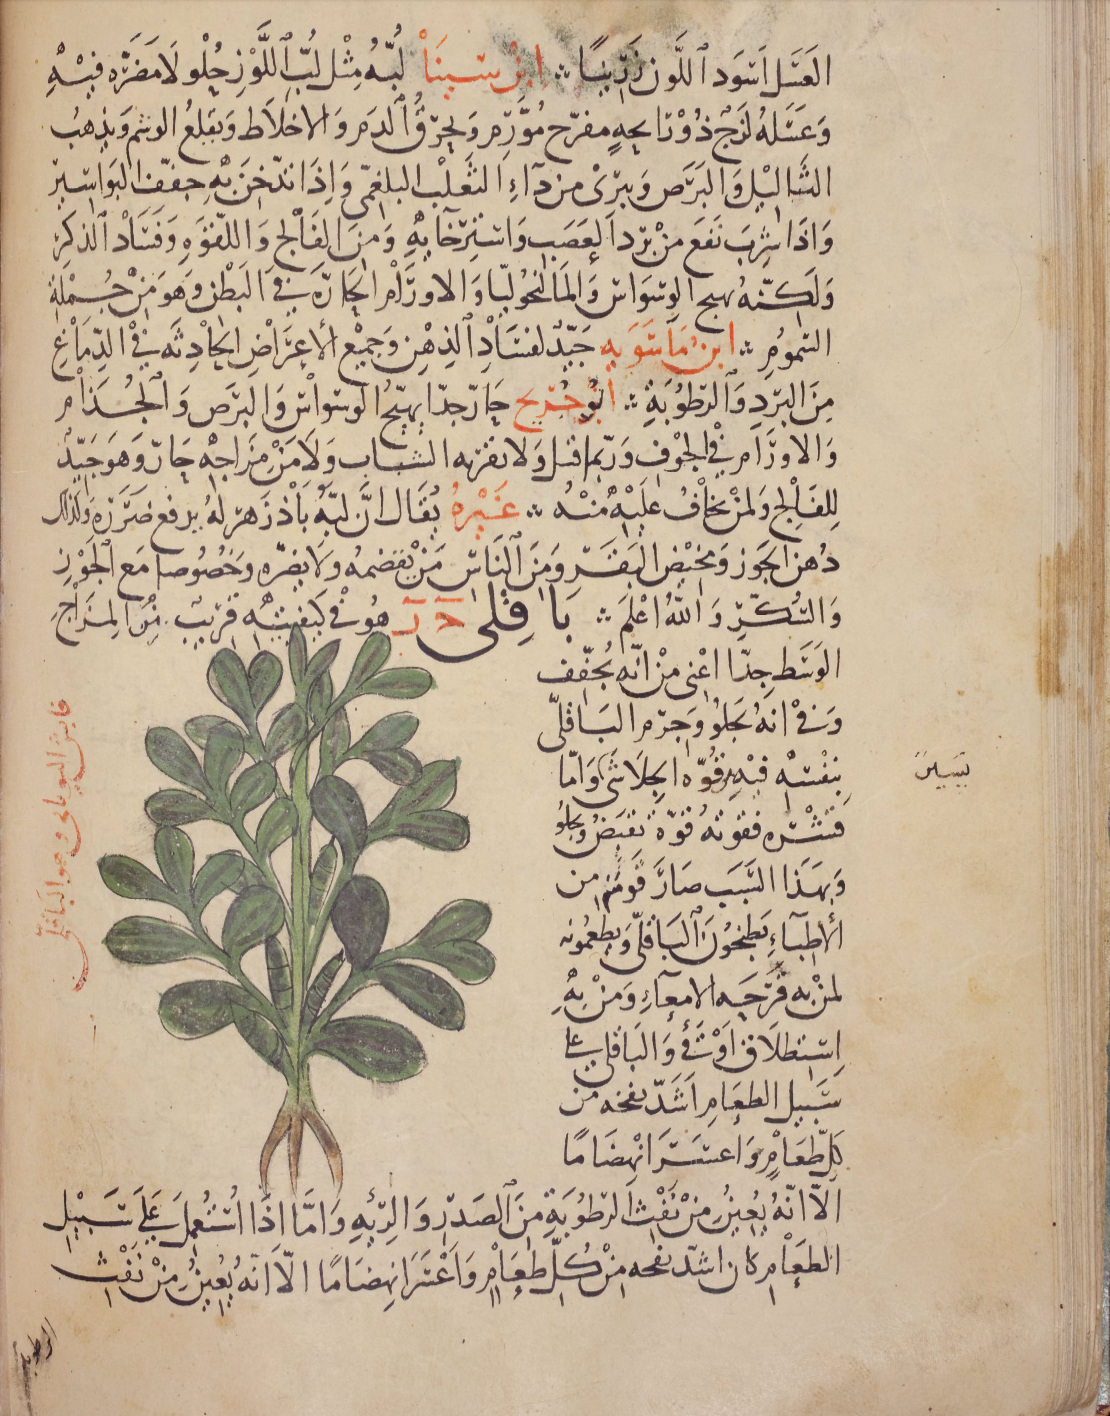 العسل اسود اللون رديئا ابن سينا لبه مثل لب اللوز حلو لا مضرة فيه
وعسله لزج ذو رائحه مفرح مؤرم ويحرق الدم والاخلاط ويقلع الوشم ويذهب
الثاليل والبرص ويبرئ من داء الثعلب البلغمي واذا تدخن به جفف البواسير
واذا شرب نفع من برد العصب واسترخآيه ومن الفالج واللقوه وفساد الذكر
ولكنه يهيج الوسواس والمالنخوليا والاورام الحارة في البطن وهو من جملة
السموم ابن ماسويه جيد لفساد الذهن وجميع الأعراض الحادثه في الدماغ
من البرد والرطوبة ابو جريح حار جدا يهيج الوسواس والبرص والجذام
والاورام في الجوف وربما قتل ولا يقربه الشباب ولا من مزاجه حار وهو جيد
للفالج ولمن يخاف عليه منه غيره يقال ان لبه باذزهر له يدفع ضرره وكذلك
دهن الجوز ومخيض البقر ومن الناس من يقضمه ولا يضره وخصوصا مع الجوز
والسكر والله اعلم باقلى هو في كيفيته قريب من المزاج
الوسط جدا اعني من انه يجفف
وفي انه يجلو وجرم الباقلى
نفسه فيه من قوه الجلا شي واما
قشره فقوته قوة تقبض ويجلو
وبهذا السبب صار قوم من
الأطباء يطبخون الباقلى ويطعمونه
لمن به قرحه الامعاء ومن به
استطلاق او قئ والباقلى على
سبيل الطعام اشد نفخه من
كل طعام واعسر انهضاما
الا انه يعين من نفث الرطوبة من الصدر والرئه واما اذا استعمل على سبيل
الطعام كان اشد نفخه من كل طعام واعسر انهضاما الا انه يعين من نفث
الرطوبة